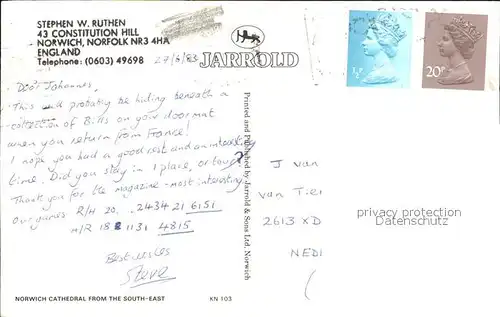 STEPHEN W. RUTHEN
43 CONSTITUTION HILL
NORWICH, NORFOLK NR3 4HA
ENGLAND
Telephone: (0603) 49698
27/6/83
JARROLD
Dear Johannes,
This will probably be hiding beneath a
collection of Bills on your doormat
when you return from France!
I hope you had a good rest and an interesting
time. Did you stay in 1 place, or tour?
Thank you for the magazine - most interesting
Our games: R/H 20. 2434 21 6151
1131 4815
Best wishes
Steve
Printed and Published by Jarrold & Sons Ltd. Norwich
½P
20P
J van
van
2613 XD
NEDE
privacy protection
Datenschutz
NORWICH CATHEDRAL FROM THE SOUTH-EAST
KN 103